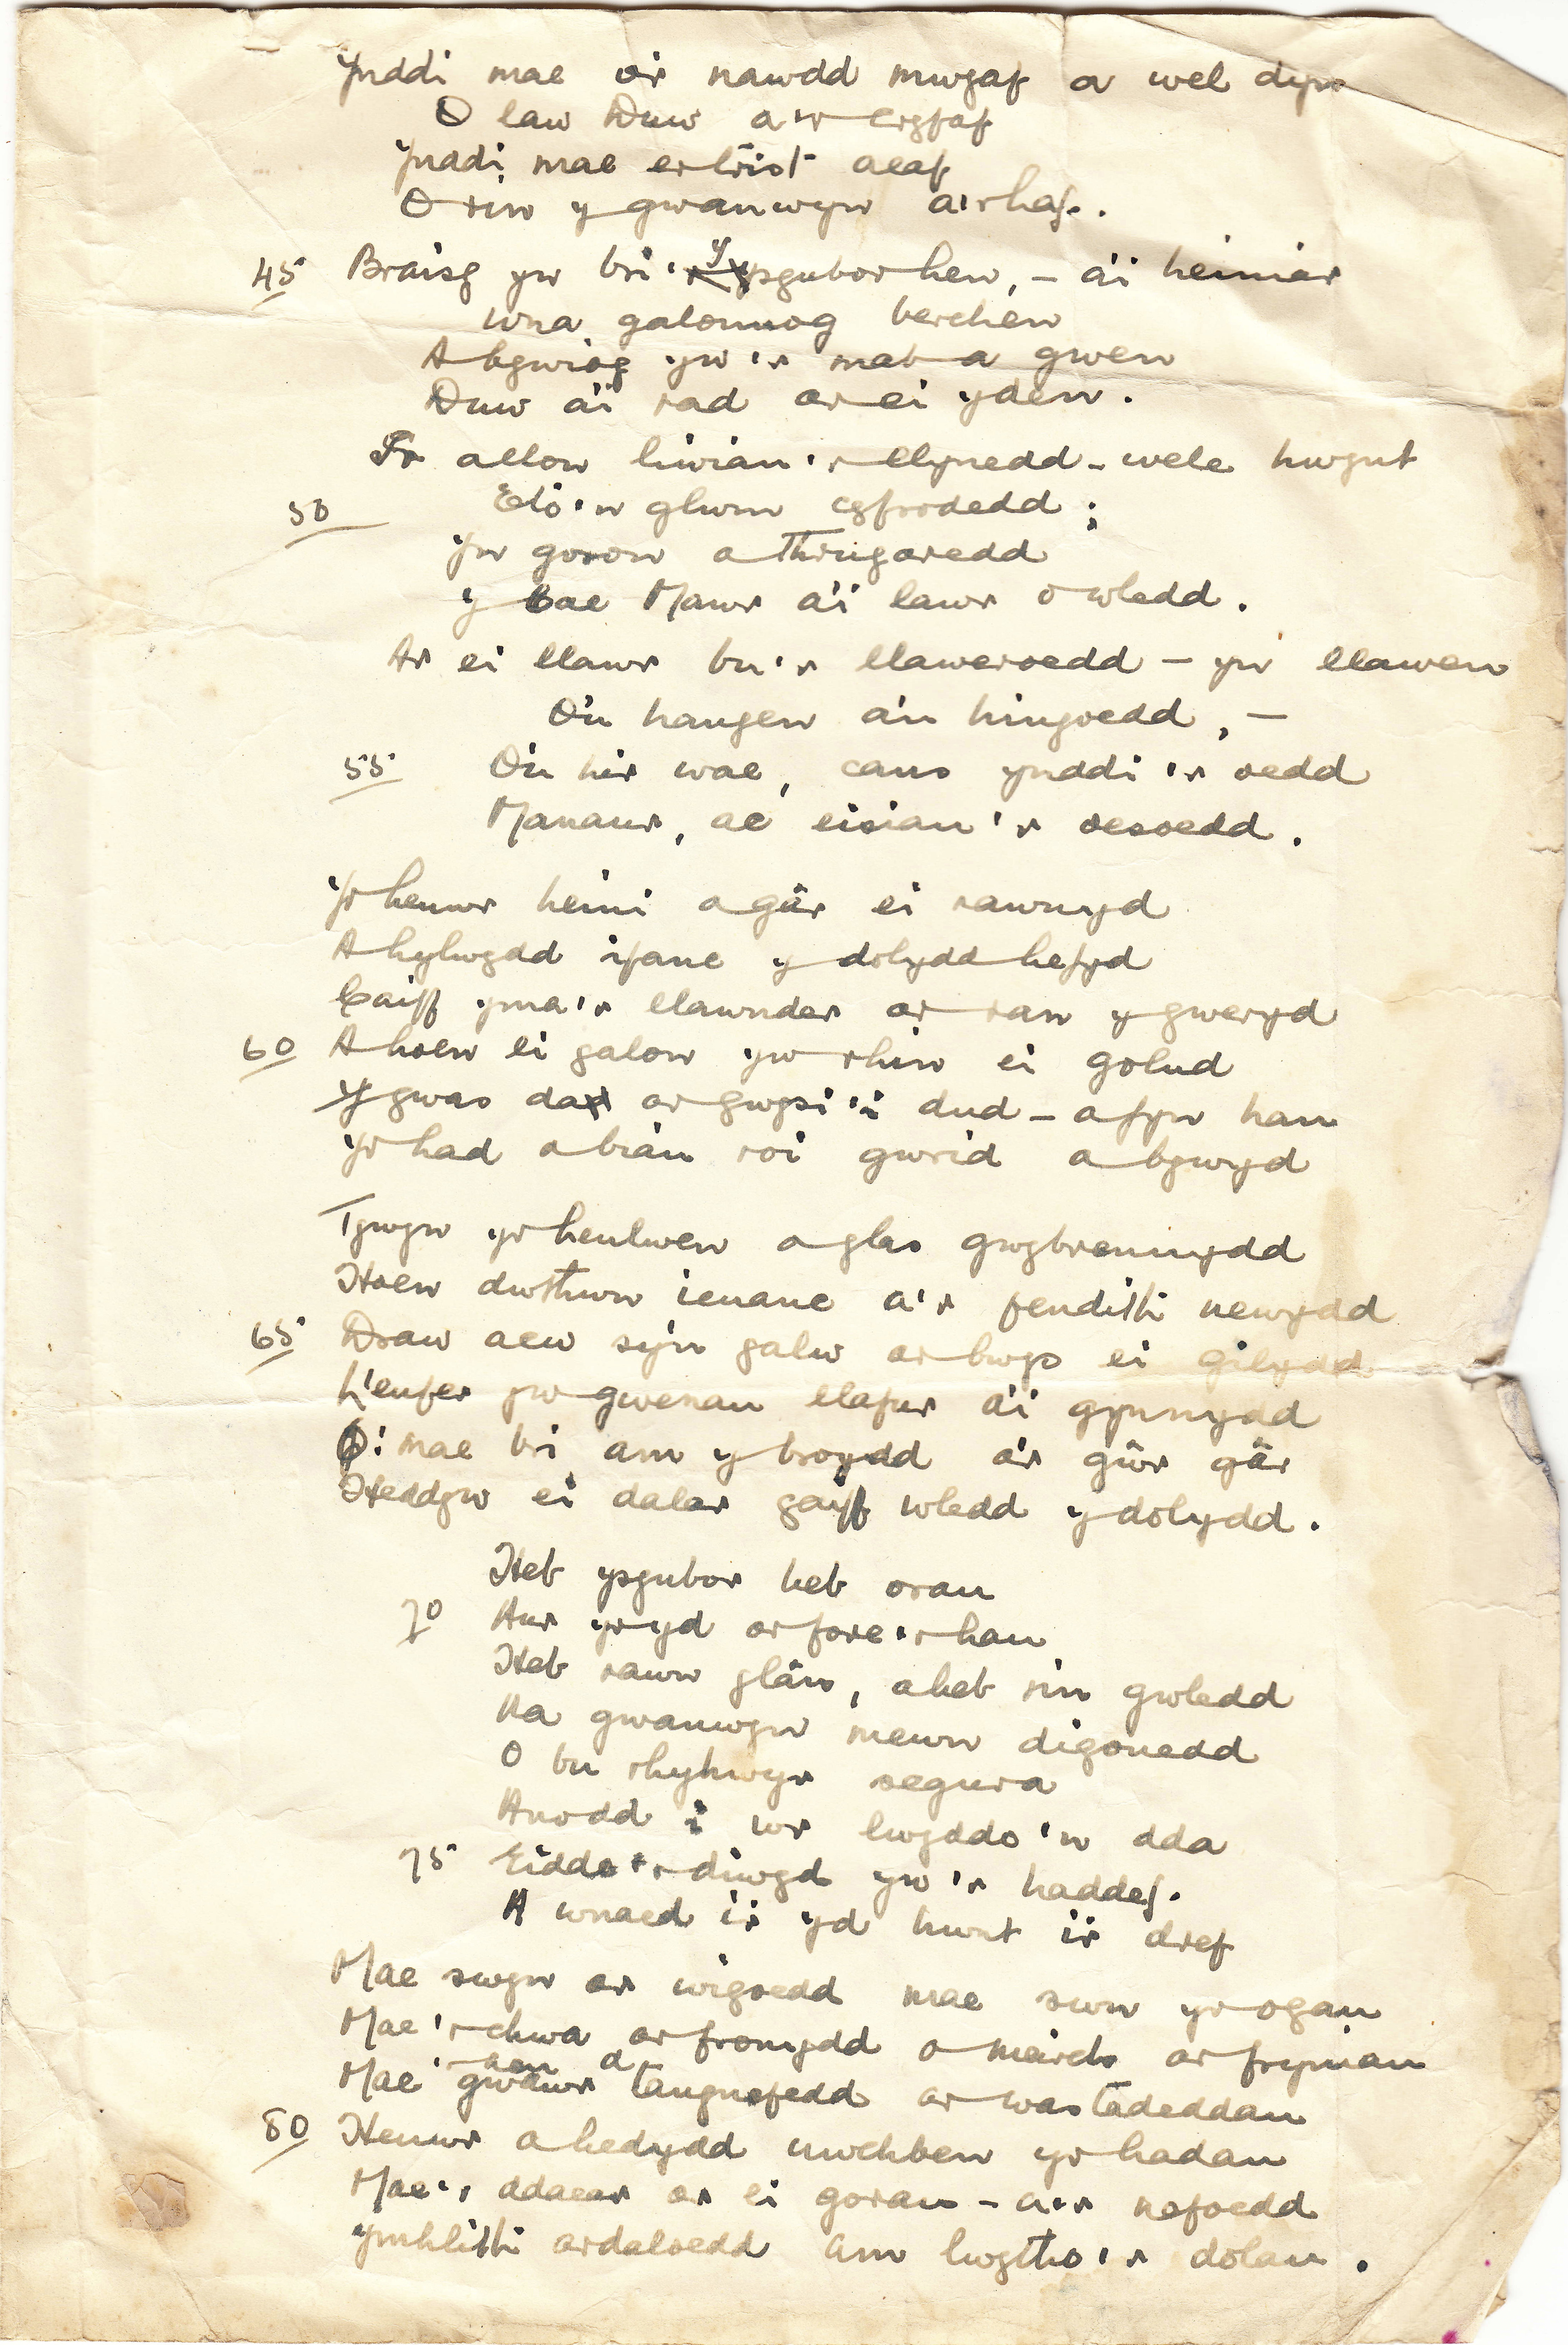 Ynddi mae o'r nawdd mwyaf a wel dyn
O law Duw a'r ergfaf
Ynddi mae er trist aeaf
O rin y gwanwyn a'r haf.
45 Braisg yw bri'r ysgubor hen, – a'i heiniar
Wna galonnog berchen
A bywiog yw'r mab a gwen
Duw a'i rad ar ei yden.
Er allor liwiau'r llynedd – wele hwynt
50 Eto'n glwm cyfrodedd;
Yn goron a Thrugaredd
Y Cae Mawr a'i lawr o wledd.
Ar ei llawr bu'r llaweroedd – yn llawen
O'u hangen a'u hingoedd, –
55 O'u hir wae, cans ynddi 'r oedd
Manawr, ac eisiau'r oesoedd.
Yr henwr heini a gâr ei rawnyd
A hylwydd ifanc y dolydd hefyd
Caiff yma'r llawnder ar ran y gweryd
60 A hoen ei galon yw rhin ei golud
Y gwas da ar gwysi'i dud – a fyn hau
Yr had o biau roi gwrid a bywyd
Tywyn yr heulwen a glas gwybrennydd
Hoen dwthwn ieuanc a'r fendith newydd
65 Draw acw sy'n galw ar bwys ei gilydd
L'enfer yw gwenau llafur a'i gynnydd
O! mae bri am y broydd a'r gŵr gâr
Heddyw ei dalar gaiff wledd y dolydd.
Heb ysgubor heb orau
70 Aur yr yd ar fore'r hau
Heb rawn glân, a heb rin gwledd
Na gwanwyn mewn digonedd
O bu rhyhwyr segura
Anodd i ŵr lwyddo'n dda
75 Eiddo'r diwyd yw'r haddef.
A wnaed i'r yd hwnt i'r dref
Mae swyn ar wigoedd mae swn yr ogau
Mae'r chwa ar fronydd a meirch ar fryniau
Mae'r aen a gwawr tangnefedd ar wastadeddau
80 Henwr a hedydd uwchben yr hadau
Mae'r ddaear ar ei gorau – a'r nefoedd
Ymhlith ardaloedd am lwytho'r dolau.